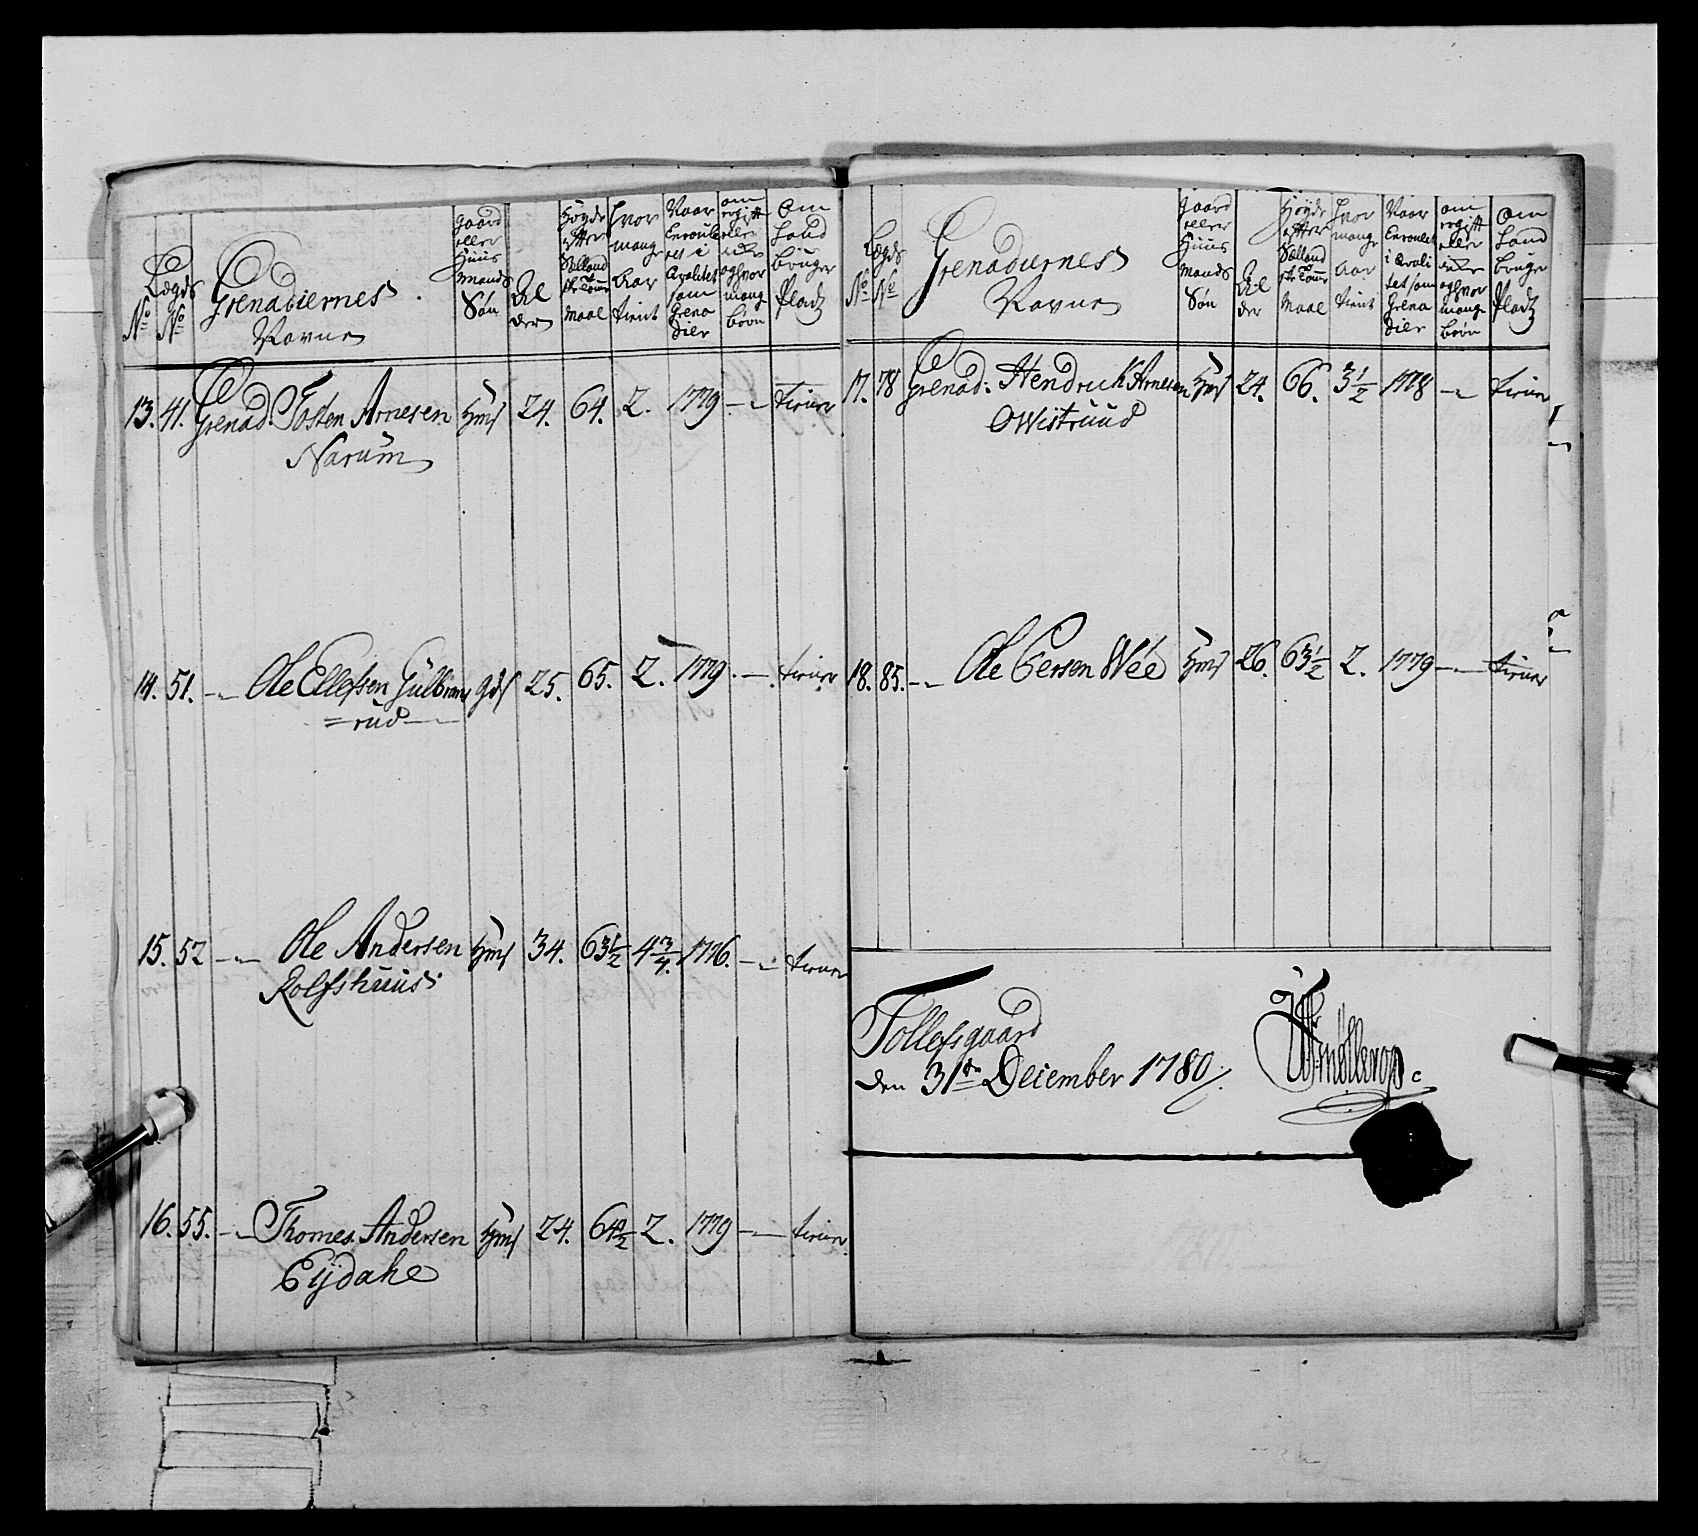 No
Lægds No
Grenadiernes Navne
gaard eller Huus mands Søn
Al der
Høyde efter Sælland ske Tomme Maal
Hvor mange Aar tient
Naar Enroule ret i Qvalitet som Grena dier
om er gift eller icke og hvor mange børn
Om Land bruger Pladz
13. 41. Grenad. Tosten Arnesen Hms 24. 64. 2. 1779 - tiener
Narum
14. 51. - Ole Ellefsen Gülbrans gds 25. 65. 2. 1779. - tiener
=rud
15. 52 - Ole Andersen Hms 34. 63½ 4¾. 1776. - tiener
Rolfshuus
16. 55. - Thomes Andersen Hms 24. 64½ 2. 1779 - tiener
Eijdahe
No
Lægds No
Grenadiernes Navne
gaard eller Huus mands Søn
Al der
Høyde efter Sælland ske Tomme Maal
Hvor mange Aar tient
Naar Enroulet i Qvali tet som Grena dier
om er gift eller icke og hvor mange børn
Om Land bruge Pladz
17. 78 Grenad: Hendrich Arnesen Hms 24. 66. 3½ 1778 - tiener
Owistruud
18. 85. - Ole Persen Wée Hms 26. 63½ 2. 1779 - tiener
Tollefsgaard
den 31te December 1780